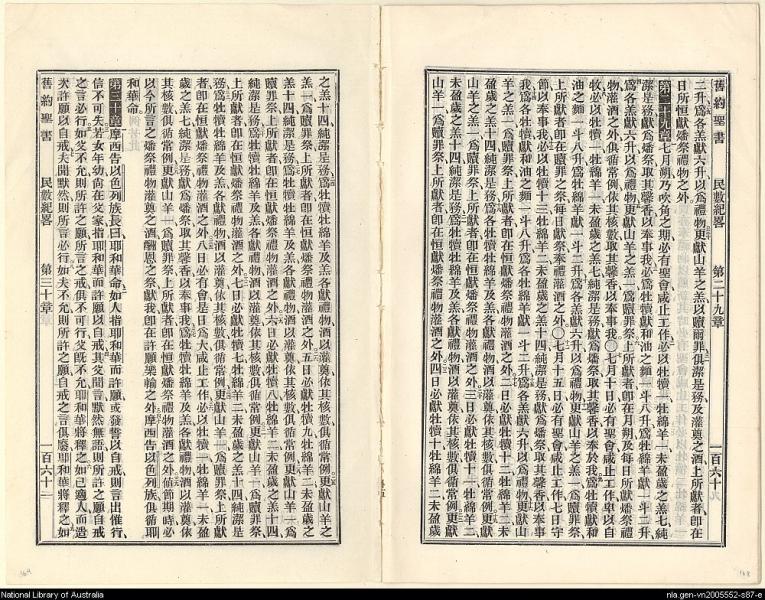 舊約聖書 民數紀畧 第二十九章 一百六十
二升爲各羔獻六升以爲禮物更獻山羊之羔以贖爾罪俱潔是務及灌奠之酒上所獻者卽在
日所恒獻燔祭禮物之外
第二十九章 七月朔乃吹角之期必有聖會咸止工作必以牡犢一牡綿羊一未盈歲之羔七純
潔是務獻爲燔祭取其馨香以奉事我必爲牡犢獻和油之麵一斗八升爲牡綿羊獻一斗二升
爲各羔獻六升以爲禮物更獻山羊之羔一爲贖罪祭上所獻者卽在月朔及每日所獻燔祭禮
物灌酒之外俱循常例依其核數取其馨香以奉事我〇七月十日必有聖會咸止工作卑以自
牧必以牡犢一牡綿羊一未盈歲之羔七純潔是務獻爲燔祭取其馨香以奉於我爲牡犢獻和
油之麵一斗八升爲牡綿羊獻一斗二升爲各羔獻六升以爲禮物更獻山羊之羔一爲贖罪祭
上所獻者卽在贖罪之祭每日恒獻燔祭奉禮灌酒之外〇七月十五日必有聖會咸止工作七日守
節以奉事我必以牡犢十三牡綿羊二未盈歲之羔十四純潔是務獻爲燔祭取其馨香以奉事
我爲各牡犢獻和油之麵一斗八升爲各牡綿羊獻一斗二升爲各羔獻六升以爲禮物更獻山
羊之羔一爲贖罪祭上所獻者卽在恒獻燔祭禮物灌酒之外二日必獻牡犢十二牡綿羊二未
盈歲之羔十四純潔是務爲各牡犢牡綿羊及羔各獻禮物灌酒以灌奠依其核數俱循常例更獻
山羊之羔一爲贖罪祭上所獻者卽在恒獻燔祭禮物灌酒之外三日必獻牡犢十一牡綿羊二
未盈歲之羔十四純潔是務爲牡犢牡綿羊及羔各獻禮物酒以灌奠依其核數俱循常例更獻
山羊一爲贖罪祭上所獻者卽在恒獻燔祭禮物灌酒之外四日必獻牡犢十牡綿羊二未盈歲
之羔十四純潔是務爲牡犢牡綿羊及羔各獻禮物酒以灌奠依其核數俱循常例更獻山羊之
羔一爲贖罪祭上所獻者卽在恒獻燔祭禮物灌酒之外五日必獻牡犢九牡綿羊二未盈歲之
羔十四純潔是務爲牡犢牡綿羊及羔各獻禮物酒以灌奠依其核數俱循常例更獻山羊一爲
贖罪祭上所獻者卽在恒獻燔祭禮物灌酒之外六日必獻牡犢八牡綿羊二未盈歲之羔十四
純潔是務爲牡犢牡綿羊及羔各獻禮物酒以灌奠依其核數俱循常例更獻山羊一爲贖罪祭
上所獻者卽在恒獻燔祭禮物灌酒之外七日必獻牡犢七牡綿羊二未盈歲之羔十四純潔是
務爲牡犢牡綿羊及羔各獻禮物酒以灌奠依其核數俱循常例更獻山羊一爲贖罪祭上所獻
者卽在恒獻燔祭禮物灌酒之外八日必有會是日爲大咸止工作必以牡犢一牡綿羊一未盈
歲之羔七純潔是務獻爲燔祭取其馨香以奉事我爲牡犢牡綿羊及羔各獻禮物酒以灌奠依
其核數俱循常例更獻山羊一爲贖罪祭上所獻者卽在恒獻燔祭禮物灌酒之外値節期時必
以今所言之燔祭禮物灌奠之酒酬恩之祭獻我卽在許願樂輸之外摩西告以色列族俱循耶
和華命
第三十章 摩西告以色列族長曰耶和華命如人指耶和華而許願或發誓以自戒則言出惟行
信不可失若女年幼尙在父家指耶和華而許願以自戒其父聞言默然無語則所許之願自戒
之言必行如父不允則所許之願所言之戒俱不可行父旣不允耶和華將釋之如已適人而造
次許願以自戒夫聞默然則所言必行如夫不允則所許之願自戒之言俱廢耶和華將釋之如
舊約聖書 民數紀畧 第三十章 一百六十一
National Library of Australia
nla.gen-vn2005552-s87-e